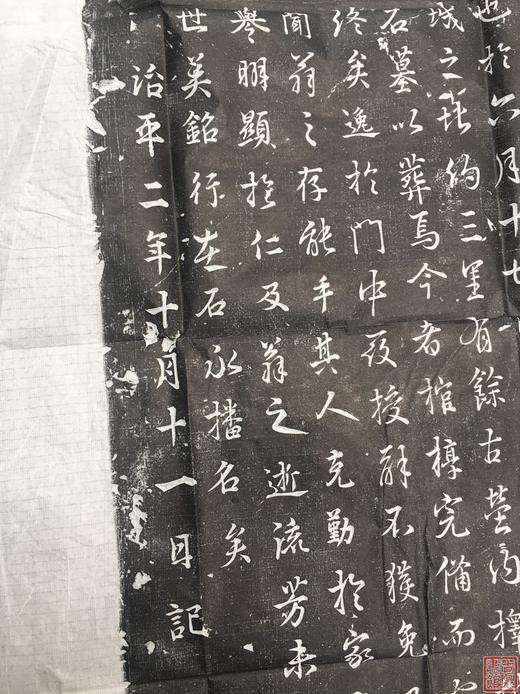 也於六月十七
城之約三里有餘古塋内擇
石墓以葬焉今者棺槨完備而
终矣逸於門中授辭不獲免
聞翁之存能乎其人克勤於家
譽明顯於仁及翁之逝流芳未
世美銘行在石永播名矣
治平二年十月十一日記